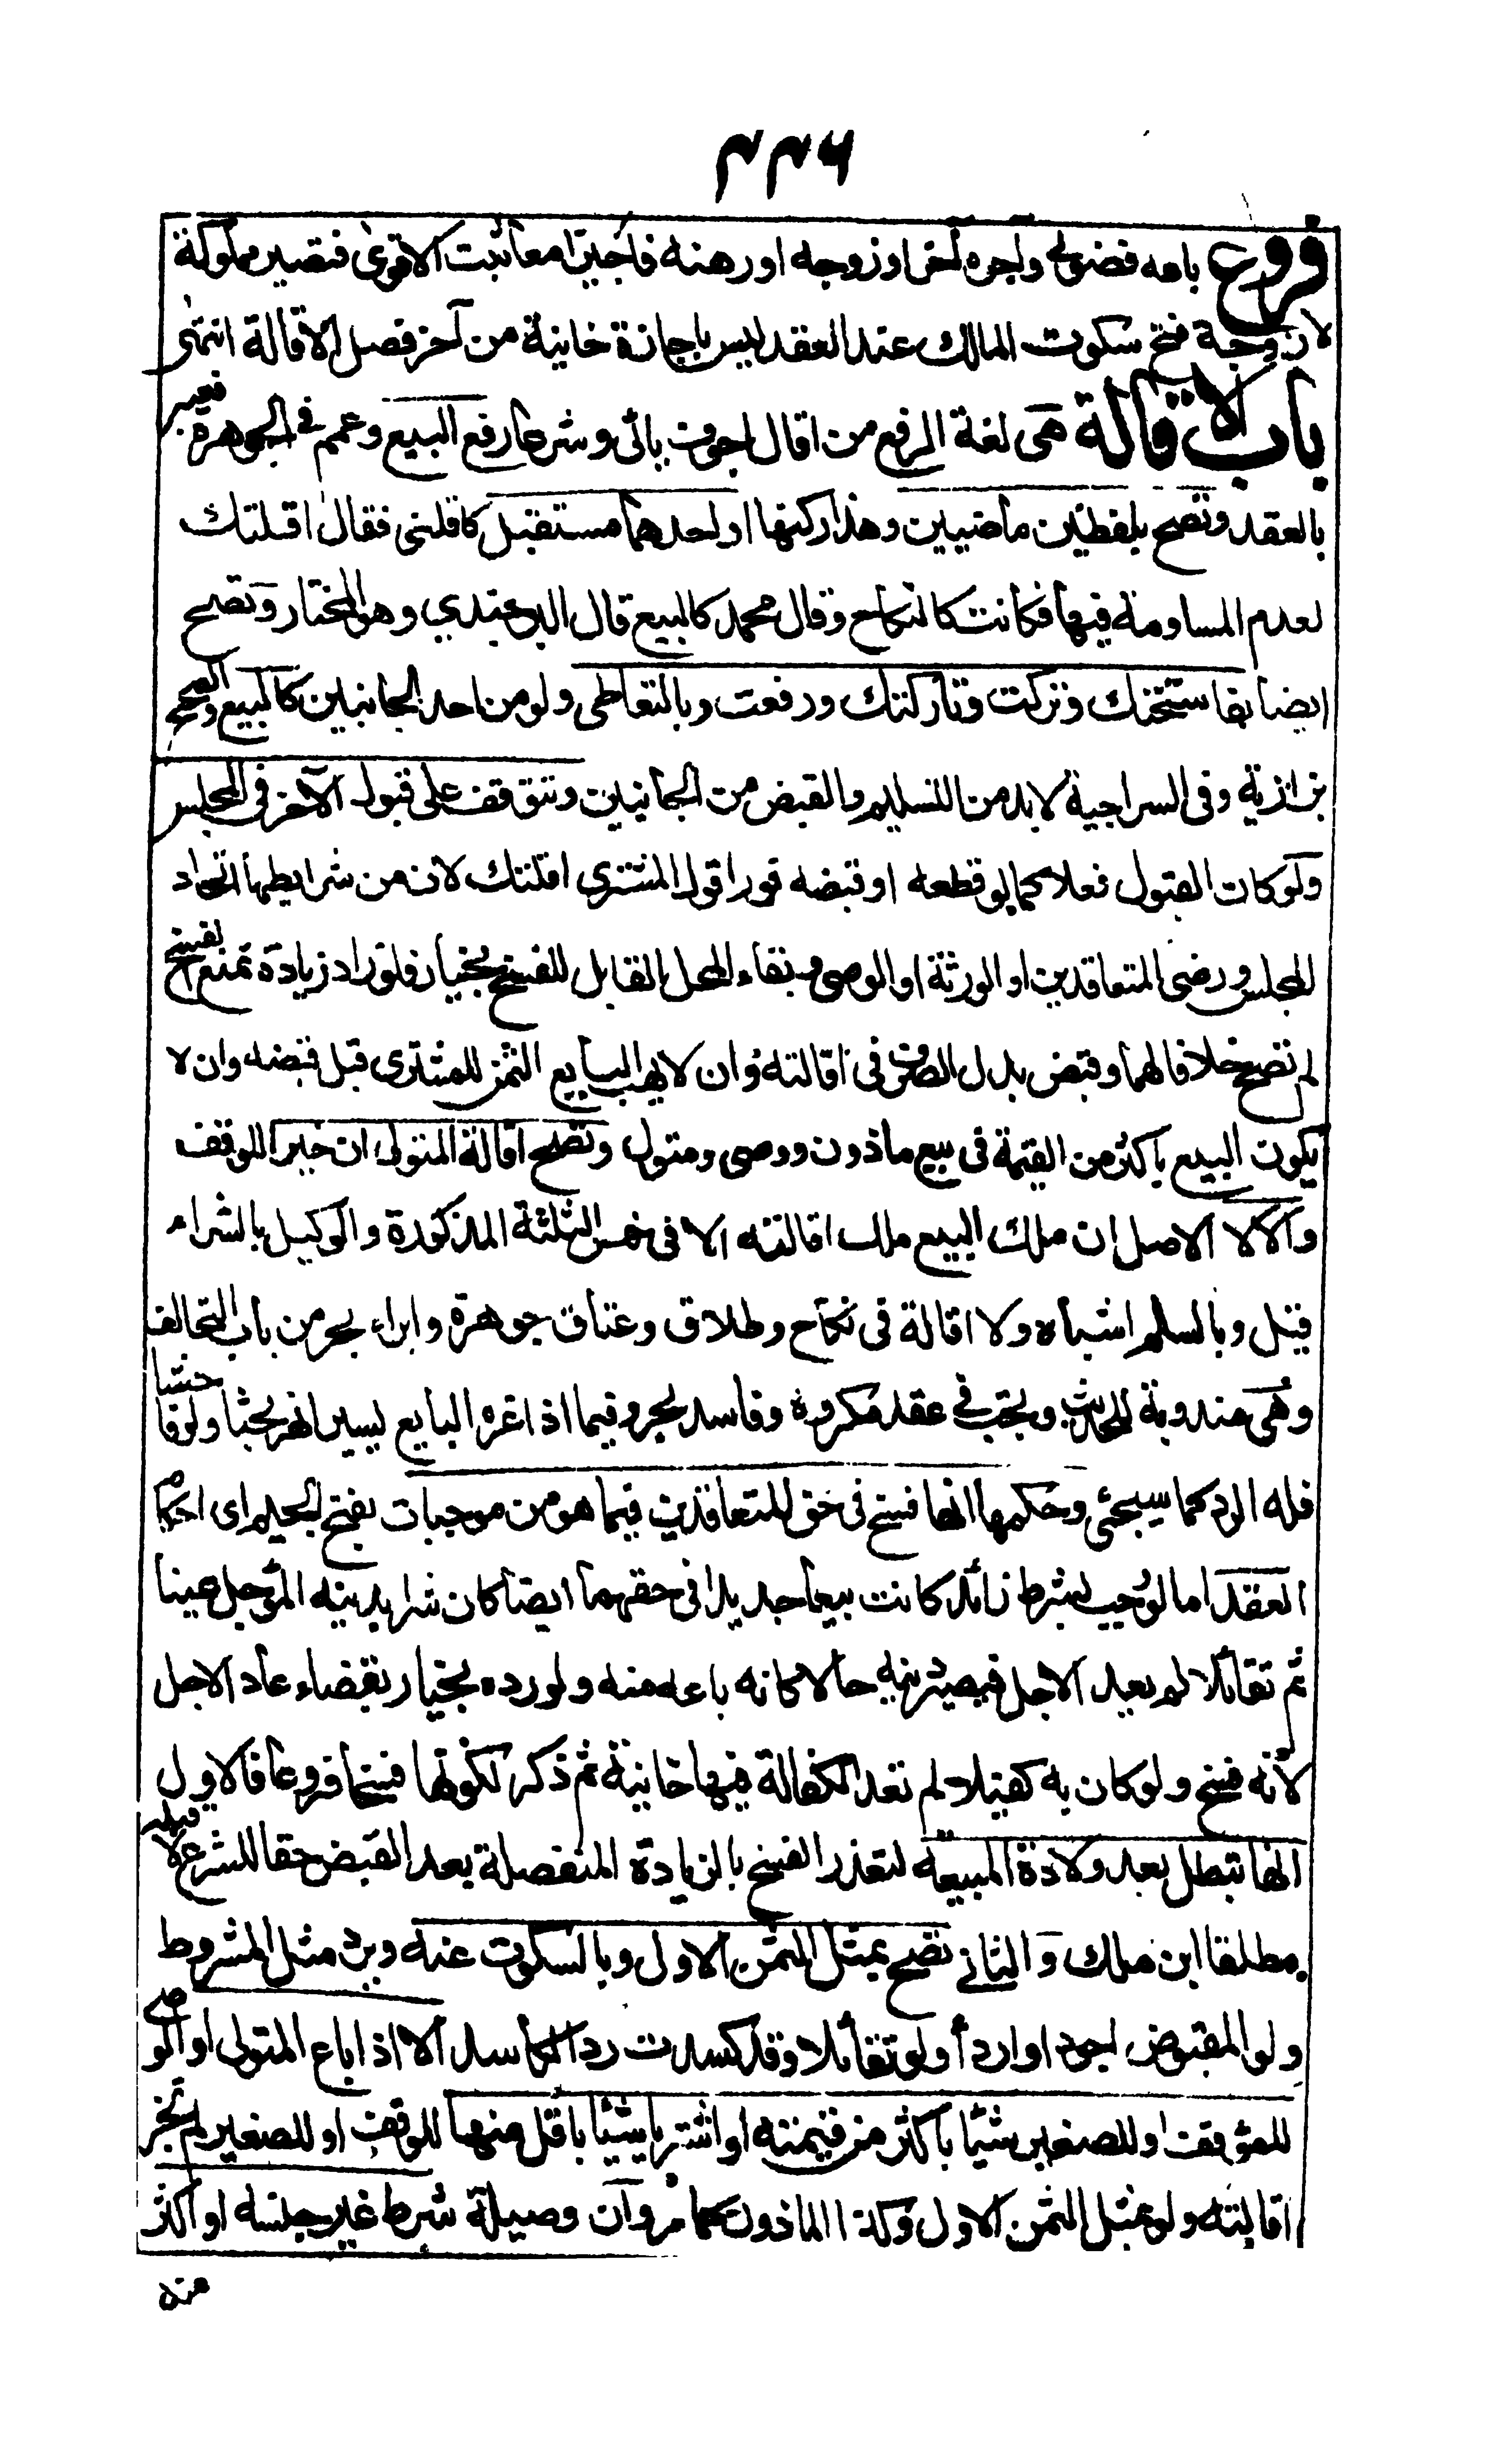 ٤٣٦
فروع باعه فضولي واجره آخر او زوجه او رهنه فاجيزا معا ثبت الاقوى فتصير مملوكة
لا زوجة فتح سكوت المالك عند العقد ليس باجازة خانية من آخر فصل الاقالة انتهى
باب الاقالة هى لغة الرفع من اقال اجوف يائى وشرعا رفع البيع وعمم فى الجوهرة فعبر
بالعقد وتصح بلفظين ماضيين وهذا ركنها او احدهما مستقبل كاقلنى فقال اقلتك
لعدم المساومة فيها فكانت كالنكاح وقال محمد كالبيع قال البرجندي وهو المختار وتصح
ايضا بفاسختك وتركت وتاركتك ورفعت وبالتعاطى ولو من احد الجانبين كالبيع وهو الصحيح
بزازية وفى السراجية لابد من التسليم والقبض من الجانبين وتتوقف على قبول الآخر فى المجلس
ولو كان القبول فعلا كما لو قطعه او قبضه فور اقول المشتري اقلتك لان من شرايطها اتحاد
المجلس ورضى المتعاقدين او الورثة او الوصى وبقاء المحل القابل للفسخ بخيار فلو زاد زيادة تمنع الفسخ
لم تصح خلافا لهما وقبض بدل الصرف فى اقالته وان لا يهب البايع الثمن للمشترى قبل قبضه وان لا
يكون البيع باكثر من القيمة فى بيع ماذون ووصى ومتول وتصح اقالة المتولى ان خيرا للوقف
والا لا الاصل ان من ملك البيع ملك اقالته الا فى خمس الثلثة المذكورة والوكيل بالشراء
قيل وبالسلم اشباه ولا اقالة فى نكاح وطلاق وعتاق جوهرة وابراء بحر من باب التحالف
وهى مندوبة للحديث وتجب فى عقد مكروه وفاسد بحر وفيما اذا غره البايع يسيرا نهر بحثا ولو فاحشا
فله الرد كما سيجئ وحكمها انها فسخ فى حق المتعاقدين فيما هو من موجبات بفتح الجيم اى احكام
العقد اما لو وجب بشرط زائد كانت بيعا جديدا فى حقهما ايضا كان شرا بدينه المؤجل عينا
ثم تقايلا لم يعد الاجل فيصير دينه حالا كانه باعه منه ولو رده بخيار بقضاء عاد الاجل
لانه فسخ ولو كان به كفيلا لم تعد الكفالة فيها خانية ثم ذكر لكونها فسخا فروعا فالاول
انها تبطل بعد ولادة المبيعة لتعذر الفسخ بالزيادة المنفصلة بعد القبض حقا للشرع لا قبله
مطلقا ابن ملك والثانى تصح بمثل الثمن الاول وبالسكوت عنه ويرد مثل المشروط
ولو المقبوض اجود او اردأ ولو تقايلا وقد كسدت رد الكاسد الا اذا باع المتولى او الوصى
للوقف او للصغير شيئا باكثر من قيمته او اشتريا شيئا باقل منها للوقف او للصغير لم تجز
اقالته ولو بمثل الثمن الاول وكذا الماذون كما مر وان وصيلة شرط غير جنسه او اكثر
منه